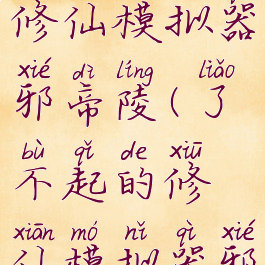 修仙模拟器
xié dì líng liǎo
邪帝陵(了
bù qǐ de xiū
不起的修
xiān mó nǐ qì xié
仙模拟器邪